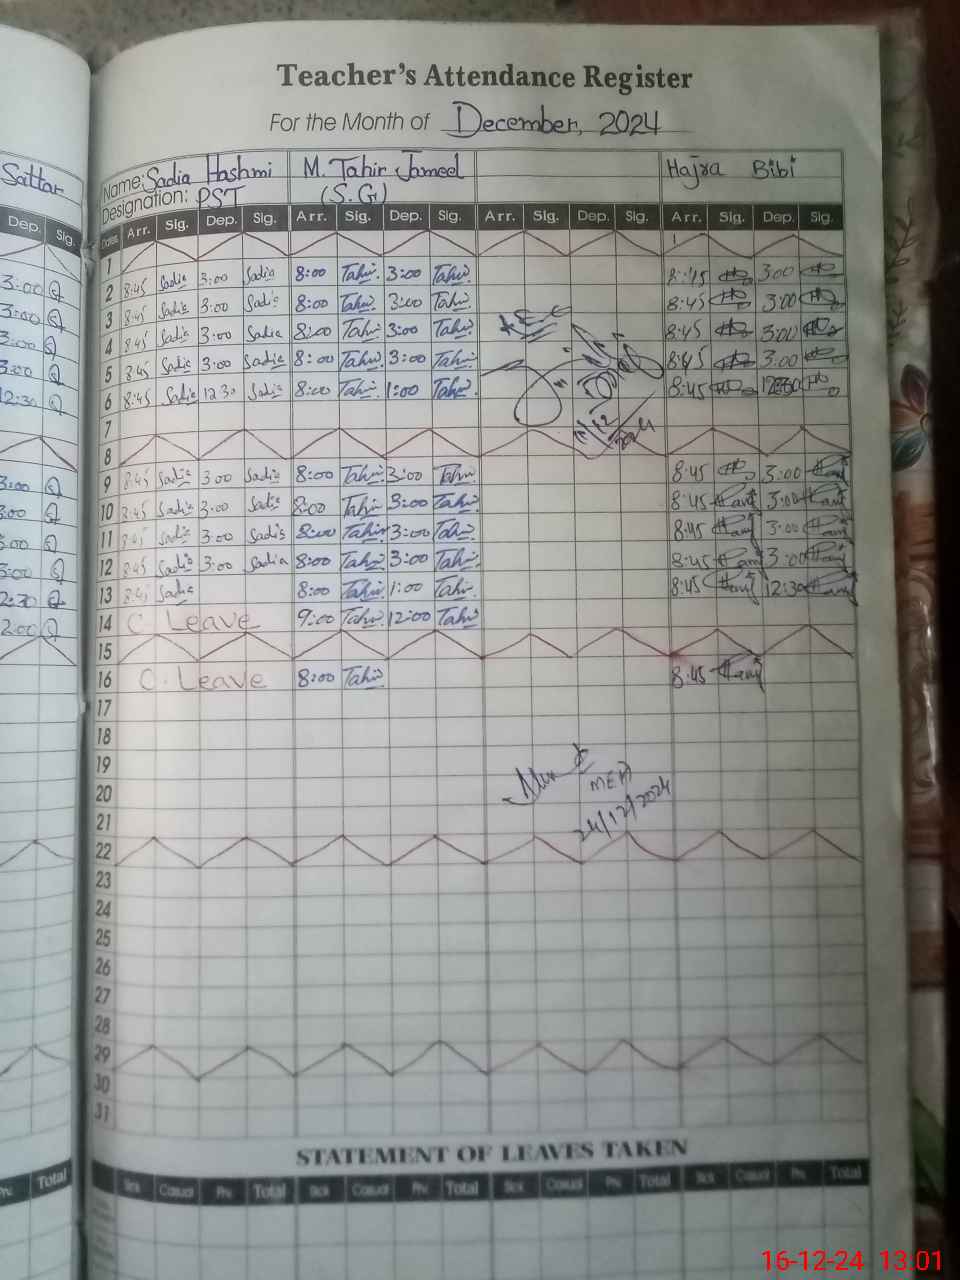 Teacher's Attendance Register
For the Month of December, 2024
Sattar Name: Sadia Hashmi M. Tahir Jameel Hajra Bibi
Designation: PST (S.G)
Dep. Sig. Dates Arr. Sig. Dep. Sig. Arr. Sig. Dep. Sig. Arr. Sig. Dep. Sig. Arr. Sig. Dep. Sig.
1
3:00 2 8:45 Sadia 3:00 Sadia 8:00 Tahir 3:00 Tahir 8:45 3:00
3:00 3 8:45 Sadia 3:00 Sadia 8:00 Tahir 3:00 Tahir 8:45 3:00
3:00 4 8:45 Sadia 3:00 Sadia 8:00 Tahir 3:00 Tahir 8:45 3:00
3:00 5 8:45 Sadia 3:00 Sadia 8:00 Tahir 3:00 Tahir 8:45 3:00
12:30 6 8:45 Sadia 12 30 Sadia 8:00 Tahir 1:00 Tahir 8:45
7
8
3:00 9 8:45 Sadia 3:00 Sadia 8:00 Tahir 3:00 Tahir 8:45 3:00
3:00 10 8:45 Sadia 3:00 Sadia 8:00 Tahir 3:00 Tahir 8:45 3:00
3:00 11 8:45 Sadia 3:00 Sadia 8:00 Tahir 3:00 Tahir 8:45 3:00
3:00 12 8:45 Sadia 3:00 Sadia 8:00 Tahir 3:00 Tahir 8:45 3:00
12:30 13 8:45 Sadia 8:00 Tahir 1:00 Tahir 8:45 12:30
2:00 14 C. Leave 9:00 Tahir 12:00 Tahir
15
16 C. Leave 8:00 Tahir 8:45
17
18
19
20 MEA
21 24/12/2024
22
23
24
25
26
27
28
29
30
31
STATEMENT OF LEAVES TAKEN
Prv. Total Sick Casual Prv. Total Sick Casual Prv. Total Sick Casual Prv. Total Sick Casual Prv. Total
16-12-24 13.01